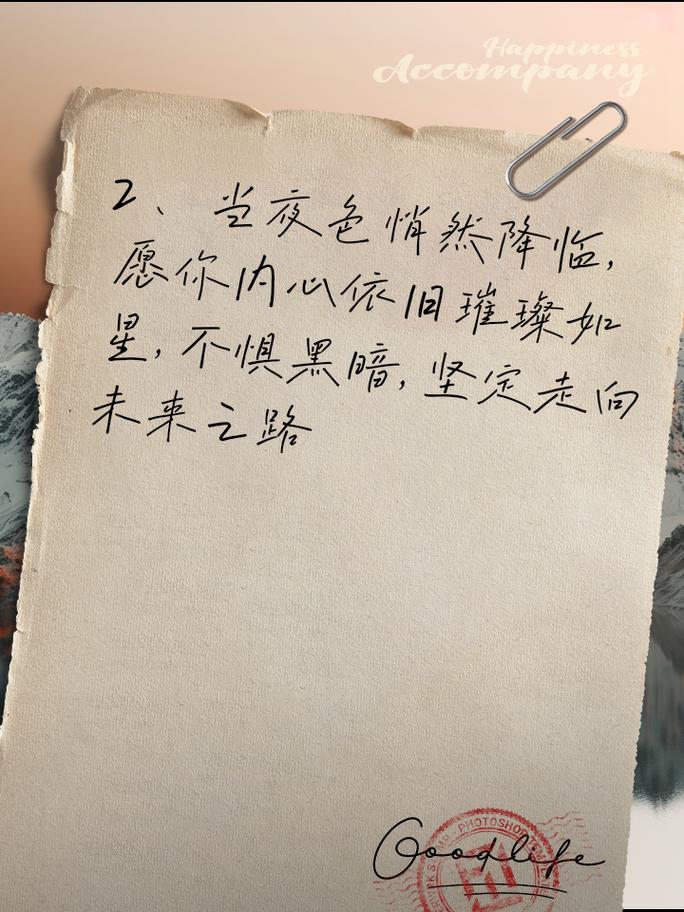 Happiness
Accompany
2、当夜色悄然降临,
愿你内心依旧璀璨如
星,不惧黑暗,坚定走向
未来之路
PHOTOSHOP
Goodlife